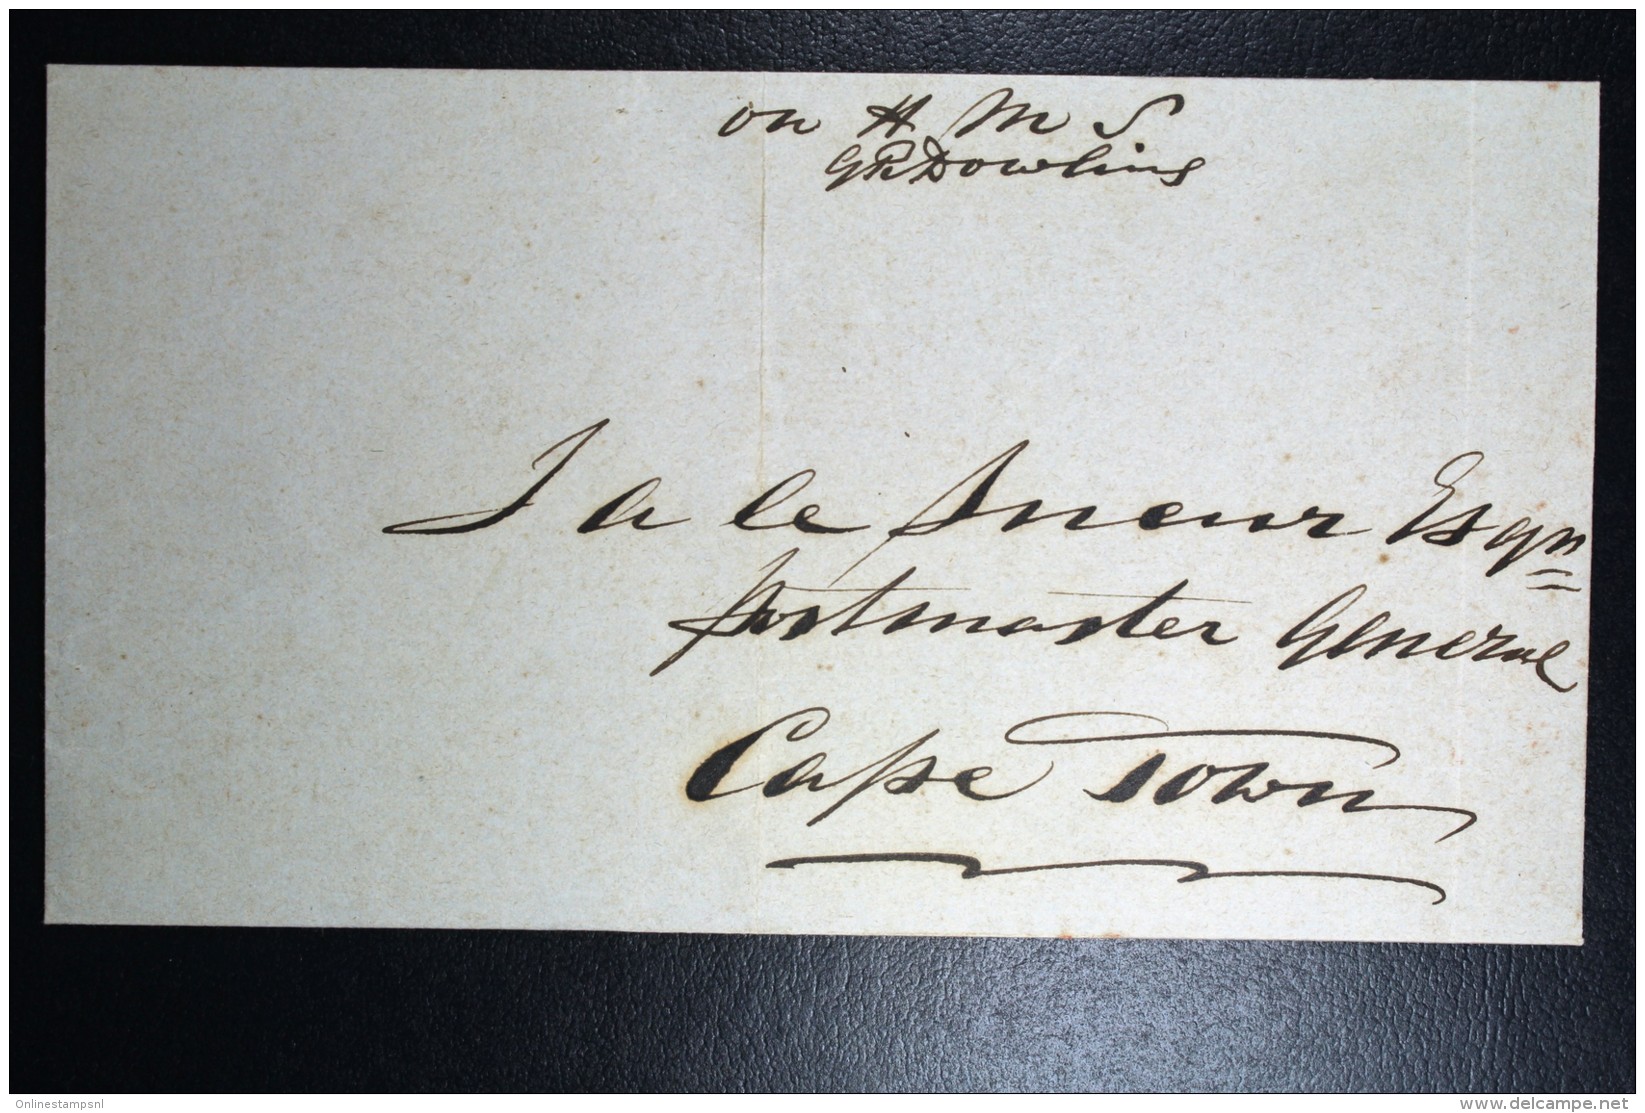 on H M S
GR Dowling
J a le Sueur Esqr
Postmaster General
Cape Town
Onlinestampsnl
www.delcampe.net